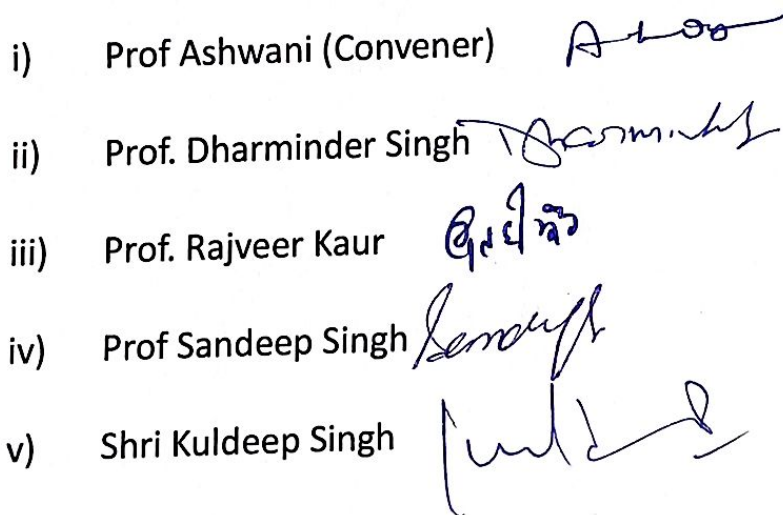 i) Prof Ashwani (Convener)
ii) Prof. Dharminder Singh
iii) Prof. Rajveer Kaur
iv) Prof Sandeep Singh
v) Shri Kuldeep Singh